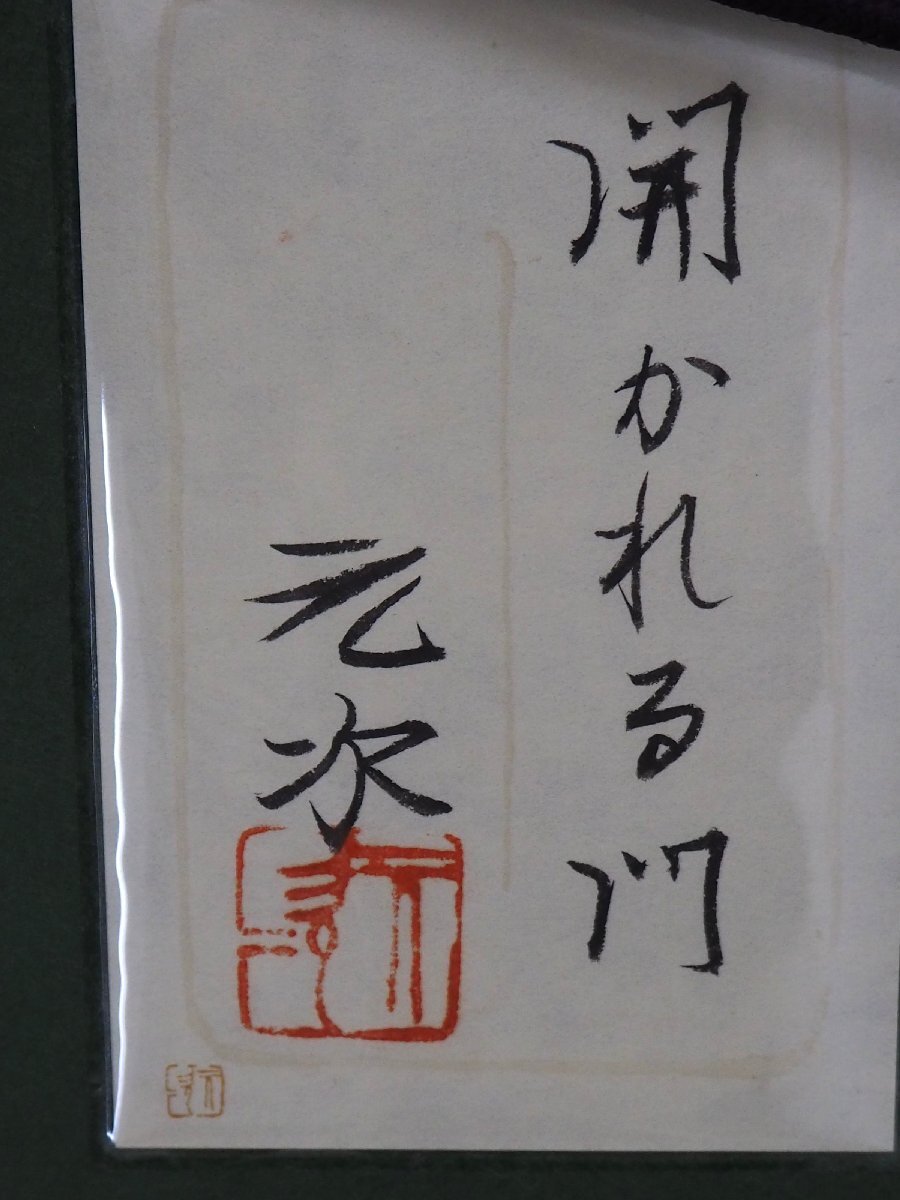 開かれる門
元次